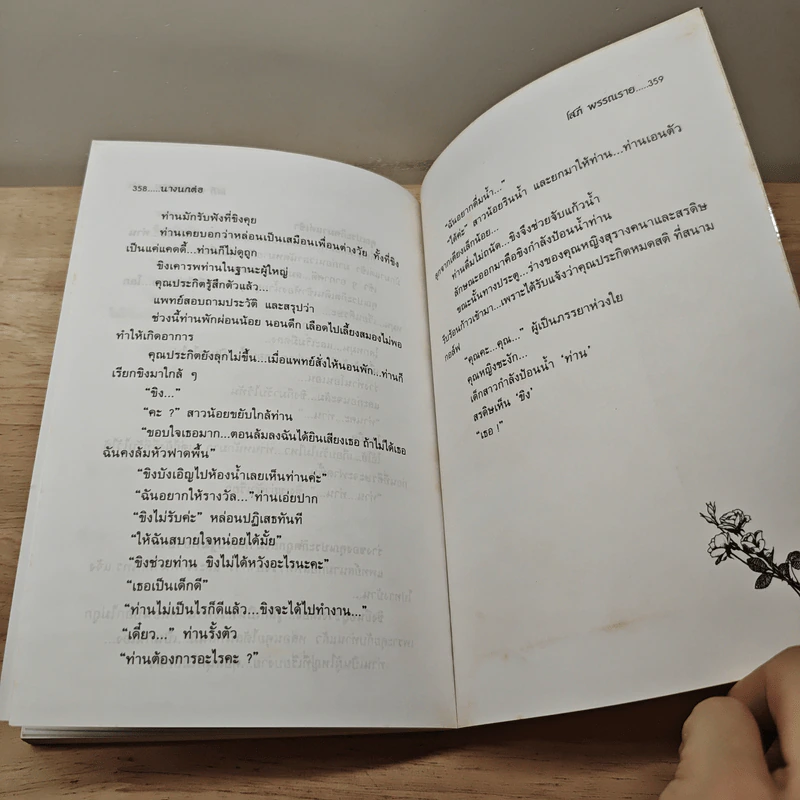 358.....นางนกต่อ
ท่านมักรับฟังที่ขิงคุย
ท่านเคยบอกว่าหล่อนเป็นเสมือนเพื่อนต่างวัย ทั้งที่ขิง
เป็นแค่แคดดี้...ท่านก็ไม่ดูถูก
ขิงเคารพท่านในฐานะผู้ใหญ่
คุณประกิตรู้สึกตัวแล้ว...
แพทย์สอบถามประวัติ และสรุปว่า
ช่วงนี้ท่านพักผ่อนน้อย นอนดึก เลือดไปเลี้ยงสมองไม่พอ
ทำให้เกิดอาการ
คุณประกิตยังลุกไม่ขึ้น...เมื่อแพทย์สั่งให้นอนพัก...ท่านก็
เรียกขิงมาใกล้ ๆ
“ขิง...”
“คะ ?” สาวน้อยขยับใกล้ท่าน
“ขอบใจเธอมาก...ตอนล้มลงฉันได้ยินเสียงเธอ ถ้าไม่ได้เธอ
ฉันคงล้มหัวฟาดพื้น”
“ขิงบังเอิญไปห้องน้ำเลยเห็นท่านค่ะ”
“ฉันอยากให้รางวัล...”ท่านเอ่ยปาก
“ขิงไม่รับค่ะ” หล่อนปฏิเสธทันที
“ให้ฉันสบายใจหน่อยได้มั้ย”
“ขิงช่วยท่าน ขิงไม่ได้หวังอะไรนะคะ”
“เธอเป็นเด็กดี”
“ท่านไม่เป็นไรก็ดีแล้ว...ขิงจะได้ไปทำงาน...”
“เดี๋ยว...” ท่านรั้งตัว
“ท่านต้องการอะไรคะ ?”
โสภี พรรณราย.....359
“ฉันอยากดื่มน้ำ...”
“ได้ค่ะ” สาวน้อยรินน้ำ และยกมาให้ท่าน...ท่านเอนตัว
ลุกจากเตียงเล็กน้อย...
ท่านดื่มไม่ถนัด...ขิงจึงช่วยจับแก้วน้ำ
ลักษณะออกมาคือขิงกำลังป้อนน้ำท่าน
ขณะนั้นทางประตู...ร่างของคุณหญิงสุรางคนาและสรดิษ
รีบร้อนก้าวเข้ามา...เพราะได้รับแจ้งว่าคุณประกิตหมดสติ ที่สนาม
กอล์ฟ
“คุณคะ...คุณ...” ผู้เป็นภรรยาห่วงใย
คุณหญิงชะงัก...
เด็กสาวกำลังป้อนน้ำ ‘ท่าน’
สรดิษเห็น ‘ขิง’
“เธอ !”